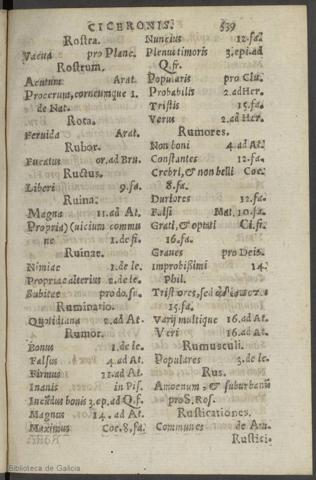 CICERONIS. 539
Rostra.
Vacua pro Planc.
Rostrum.
Acutum Arat.
Procerum, corneumque 1.
de Nat.
Rota.
Feruida Arat.
Rubor.
Fucatus or. ad Bru.
Ructus.
Liberi 9. fa.
Ruina.
Magna 11. ad At.
Propria) (uicium commu
ne 1. de fi.
Ruinae.
Nimiae 1. de le.
Propriae alterius 2. de le.
Subitae pro do. su.
Ruminatio.
Quotidiana 2. ad At.
Rumor.
Bonus 1. de le.
Falsus 4. ad At.
Firmus 11. ad At.
Inanis in Pis.
Incendus bonis 3. ep. ad Q. f.
Magnus 14. ad At.
Maximus Coe. 8. fa.
Nuncius 12. fa.
Plenus timoris 3. ep. ad
Q. fr.
Popularis pro Clu.
Probabilis 2. ad Her.
Tristis 15. fa.
Verus 2. ad Her.
Rumores.
Non boni 4 ad At.
Constantes 12. fa.
Crebri, & non belli Coe.
8. fa.
Duriores 12. fa.
Falsi Mat. 10. fa.
Grati, & optati Ci. fi.
16. fa.
Graues pro Deio.
Improbissimi 14.
Phil.
Tristiores, sed
15. fa.
Varij multique 16. ad At.
Veri 16. ad At.
Rumusculi.
Populares 3. de le.
Rus.
Amoenum, & suburbanum
pro S. Ros.
Rusticationes.
Communes de Am.
Rustici-
Biblioteca de Galicia